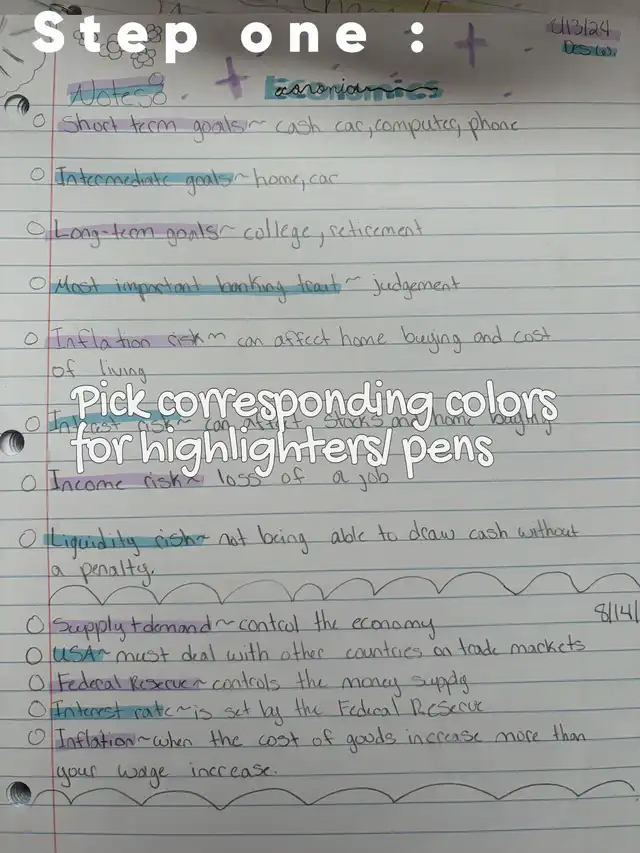 Step one :
8/13/24
Notes
Economics
Short term goals~ cash car, computer, phone
Intermediate goals~ home, car
Long-term goals~ college, retirement
Most important banking trait ~ judgement
Inflation risk~ can affect home buying and cost
of living
Pick corresponding colors
for highlighters/ pens
risk~ can affect stocks and home buying
Income risk~ loss of a job
Liquidity risk~ not being able to draw cash without
a penalty.
8/14/
Supply + demand ~ control the economy
USA~ must deal with other countries on trade markets
Federal Reserve~ controls the money supply
Interest rate~ is set by the Federal Reserve
Inflation~ when the cost of goods increase more than
your wage increase.